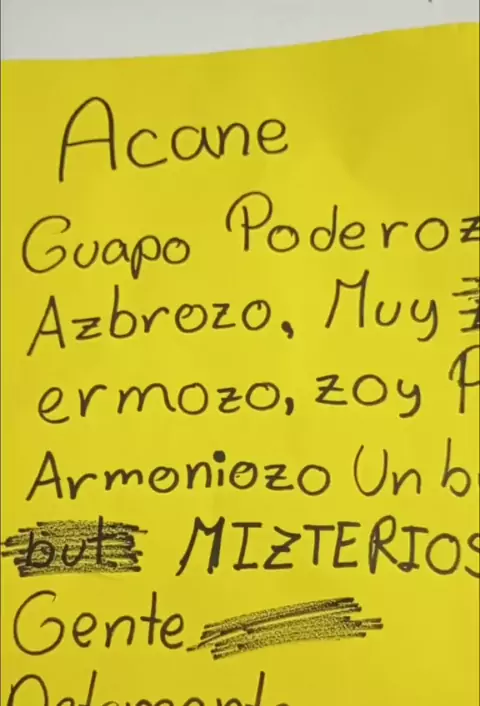 Acane
Guapo Poderoz
Azbrozo, Muy
ermozo, zoy P
Armoniozo Un b
but MIZTERIOS
Gente